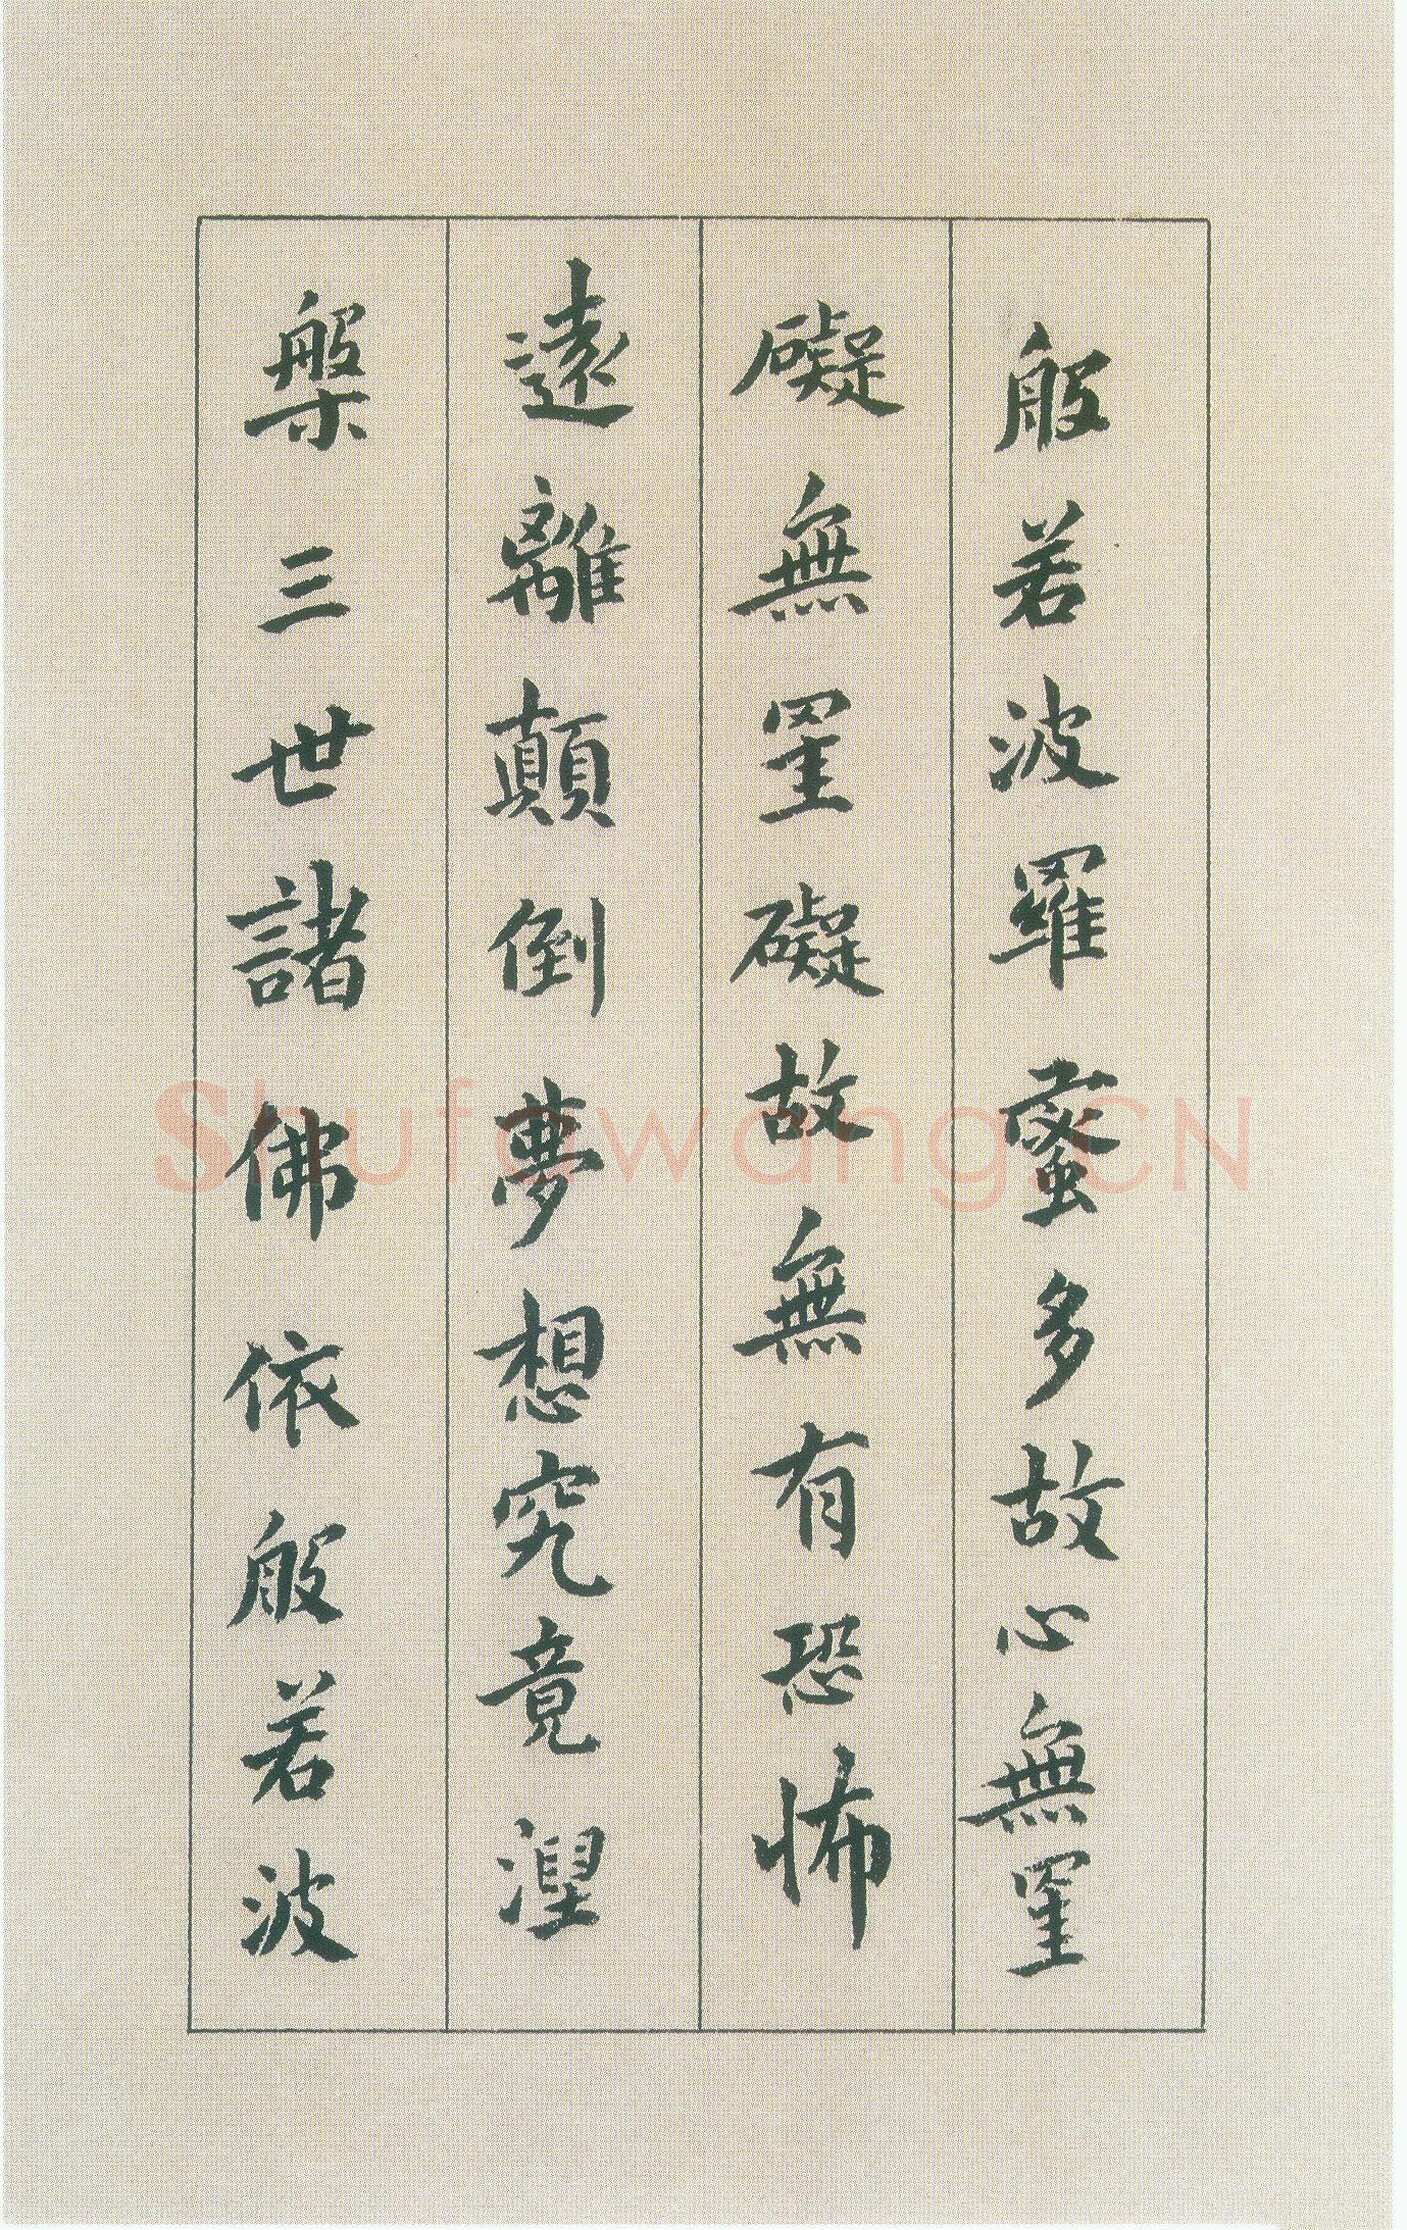 般若波羅蜜多故心無罣
礙無罣礙故無有恐怖
遠離顛倒夢想究竟涅
槃三世諸佛依般若波
Shufawang.CN